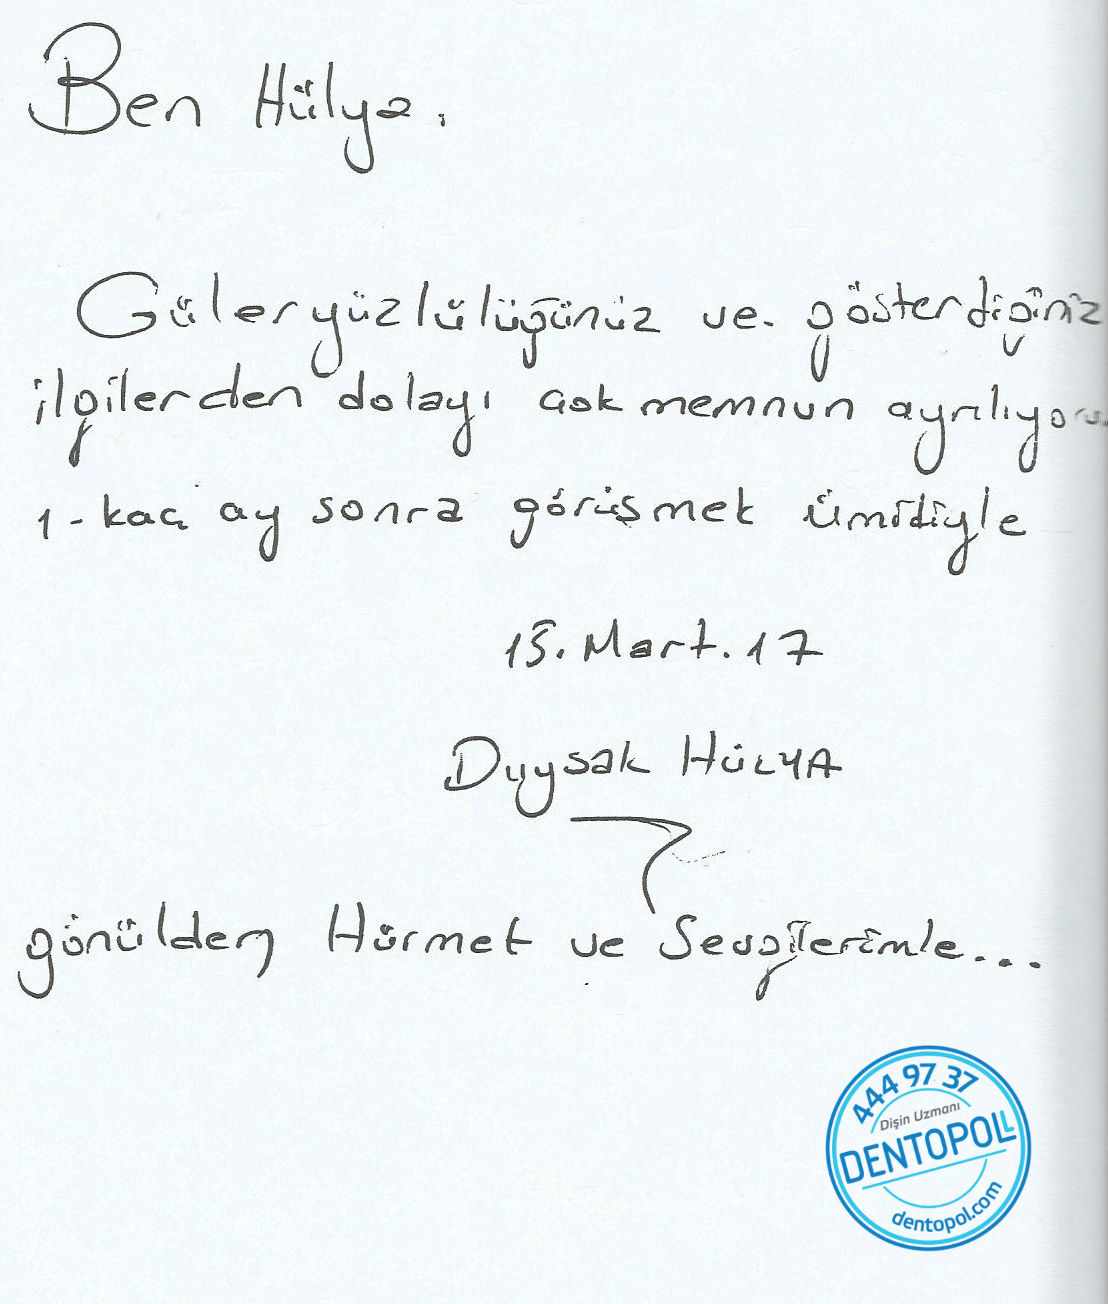 Ben Hülya.
Güleryüzlülüğünüz ve gösterdiğiniz
ilgilerden dolayı çok memnun ayrılıyoru
1-kaç ay sonra görüşmek ümidiyle
15.Mart.17
Duysak HÜLYA
gönülden Hürmet ve Sevgilerimle...
444 97 37
Dişin Uzmanı
DENTOPOLL
dentopol.com